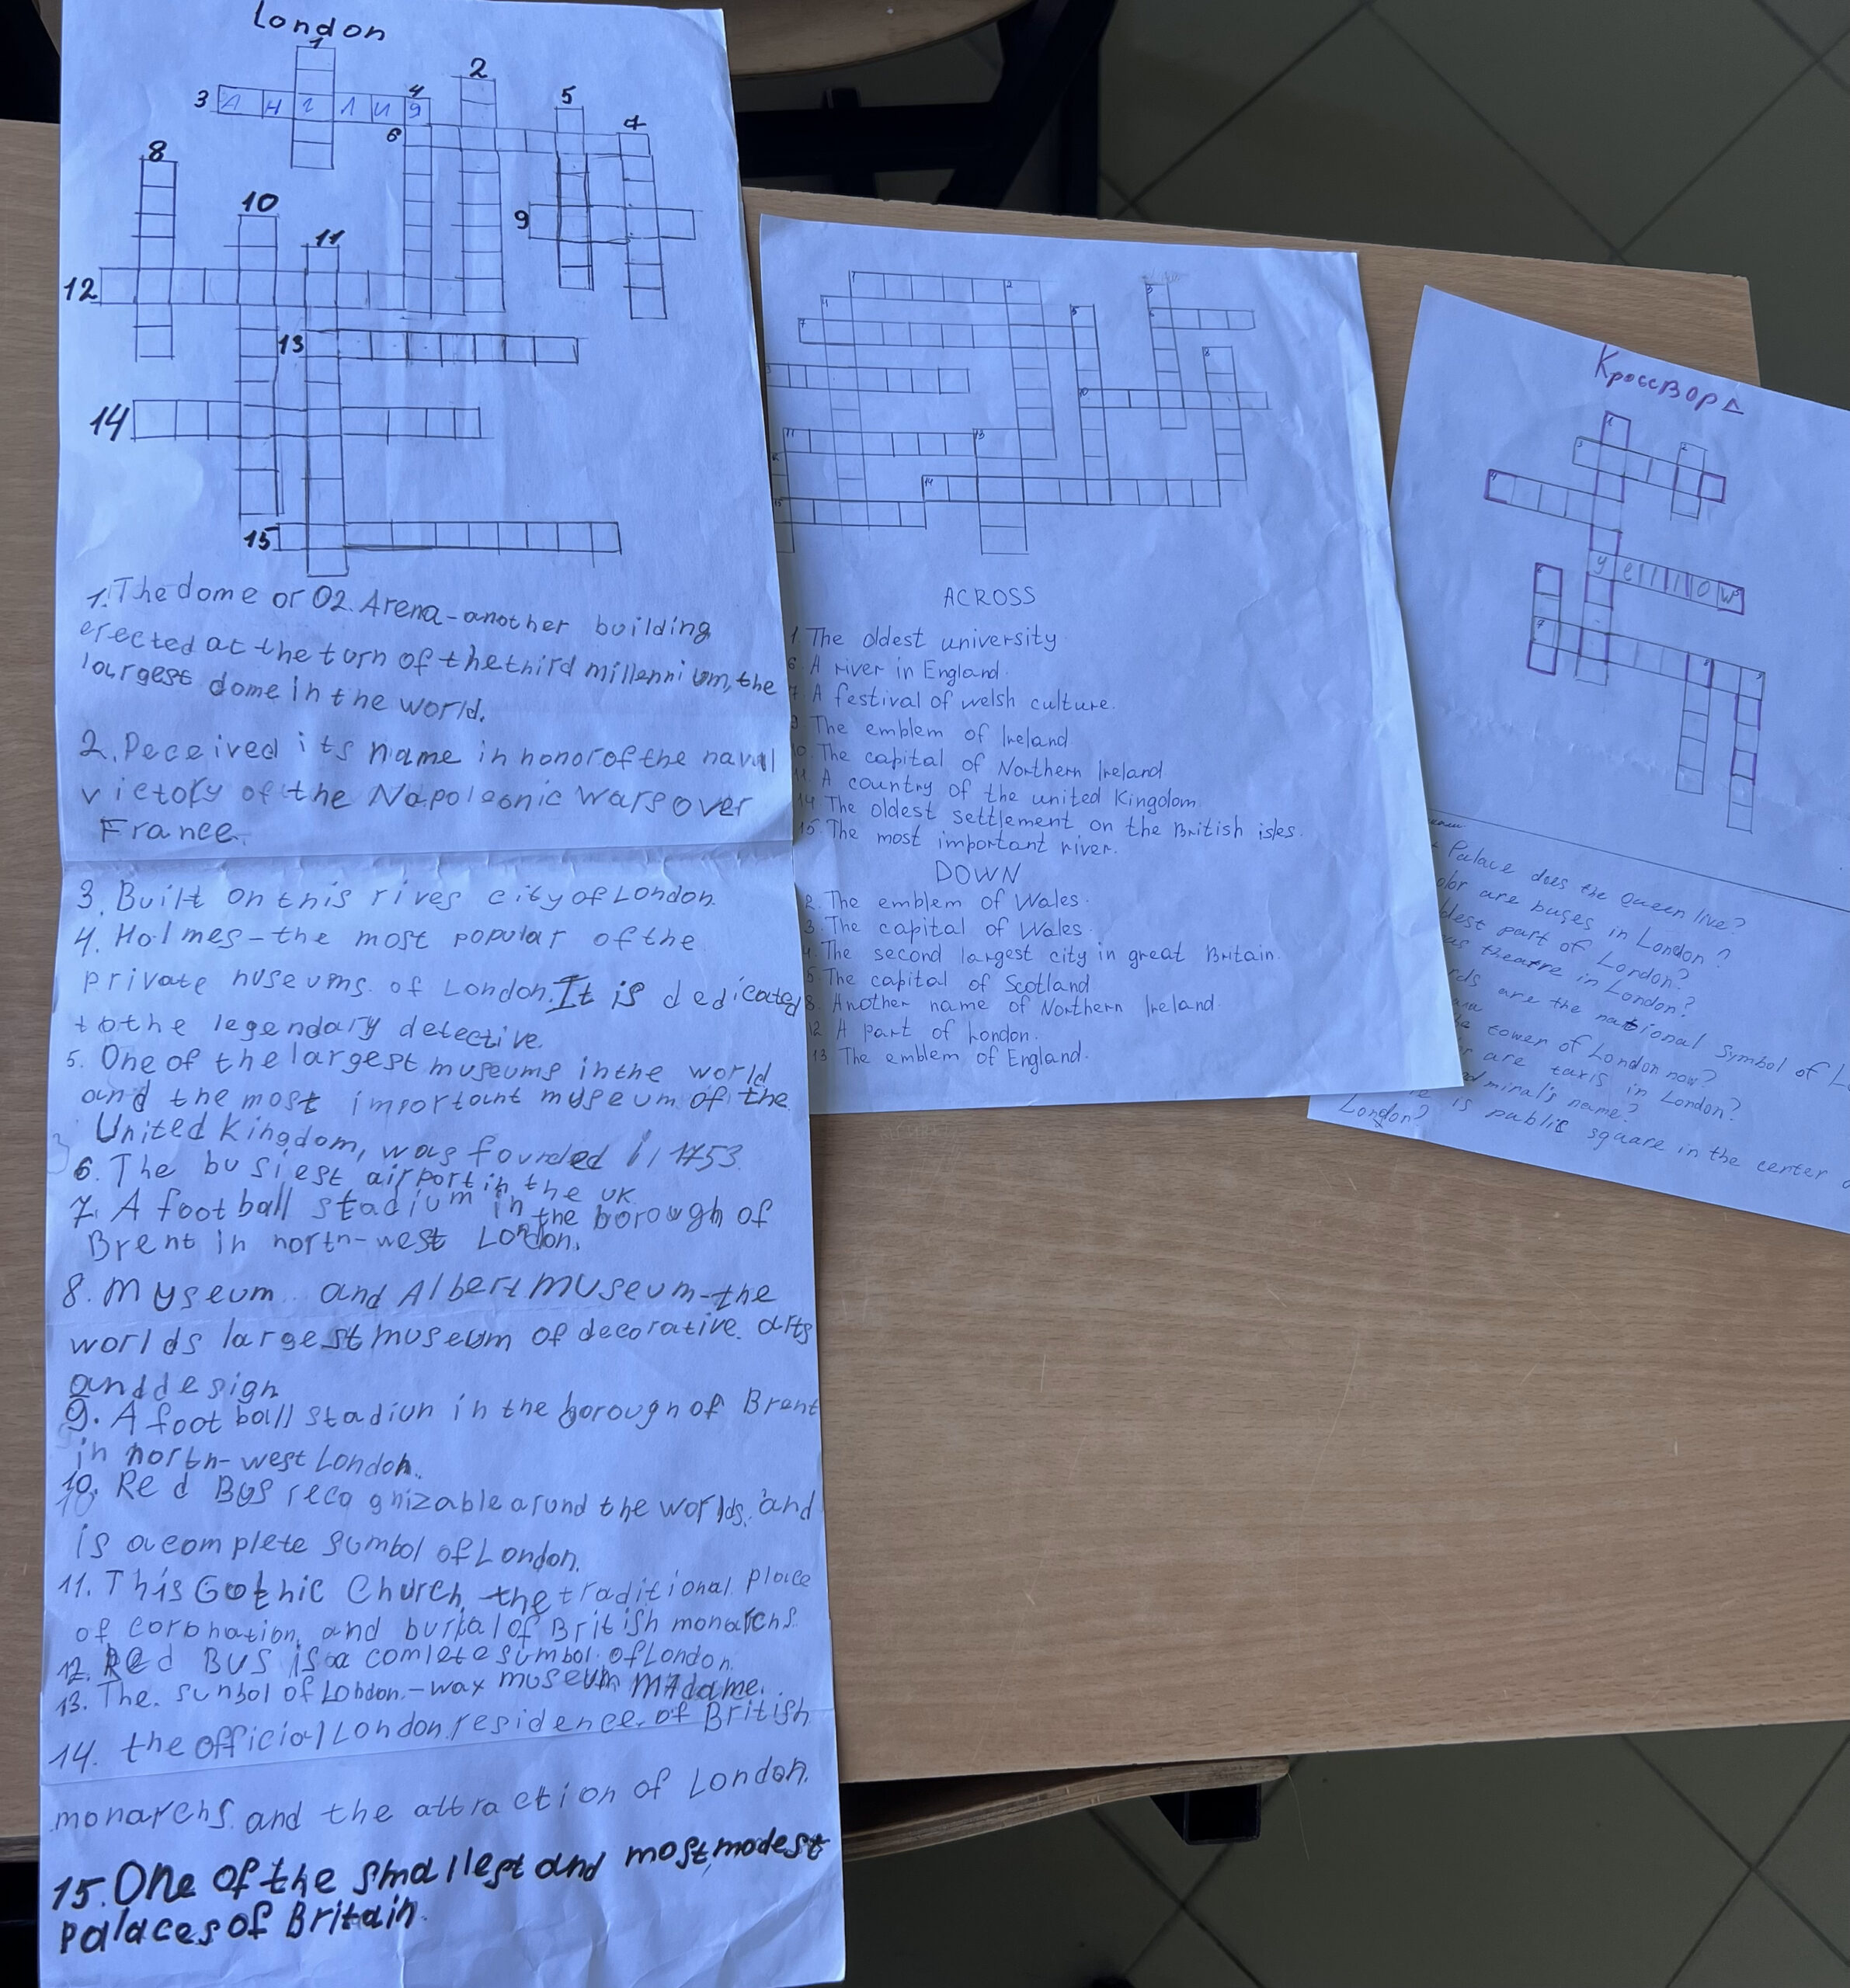 London
1
2
3 Англия
4
5
6
7
8
9
10
11
12
13
14
15
1. The dome or O2. Arena-another building
erected at the turn of thethird millennium, the
largest dome in the world.
2. Peceived its name in honor of the naval
victory of the Napoleonic Wars over
France.
3. Built on this rives city of London.
4. Holmes-the most popular of the
private nuseums of London. It is dedicated
to the legendary detective.
5. One of the largest museums in the world
and the most important myseum of the
United Kingdom, was founded in 1753.
6. The busiest airport in the UK
7. A football stadium in the borough of
Brent in nortn-west London.
8. Myseum .. and Albert museum-the
worlds largest museum of decorative. arts
and design
9. A football stadiun in the borough of Brent
in nortn-west London.
10. Red Bus recognizable arund the worlds, and
is a complete sumbol of London.
11. This Gothic Church, the traditional place
of coronation, and burial of British monarchs.
12. Red Bus is a comlete sumbol of London.
13. The. sunbol of London.-wax museum Madame.
14. the official London, residence, of British
monarchs. and the attraction of London.
15. One of the smallest and most, modest
palaces of Britain.
1
2
3
4
5
6
7
8
10
11
13
14
15
ACROSS
1 The oldest university.
6 A river in England.
7 A festival of welsh culture.
9 The emblem of Ireland
10 The capital of Northern Ireland
11 A country of the united Kingdom
14 The oldest settlement on the British isles.
15 The most important river.
DOWN
2. The emblem of Wales.
3. The capital of Wales.
4. The second largest city in great Britain.
5 The capital of Scotland
8. Another name of Northern Ireland
12 A part of London.
13 The emblem of England.
Кроссворд
1
2
3
4
yellow
6
7
8
9
Palace does the Queen live?
olor are buses in London?
ldest part of London?
us theatre in London?
rds are the national symbol of L
he tower of London now?
r are taxis in London?
dmiral's name?
is public square in the center
London?